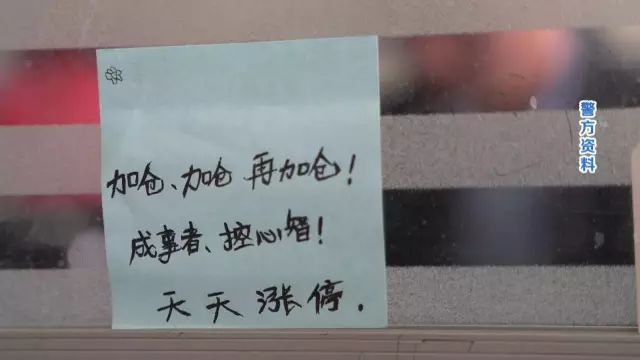 加仓、加仓 再加仓！
成事者、控心智！
天天涨停.
警方资料